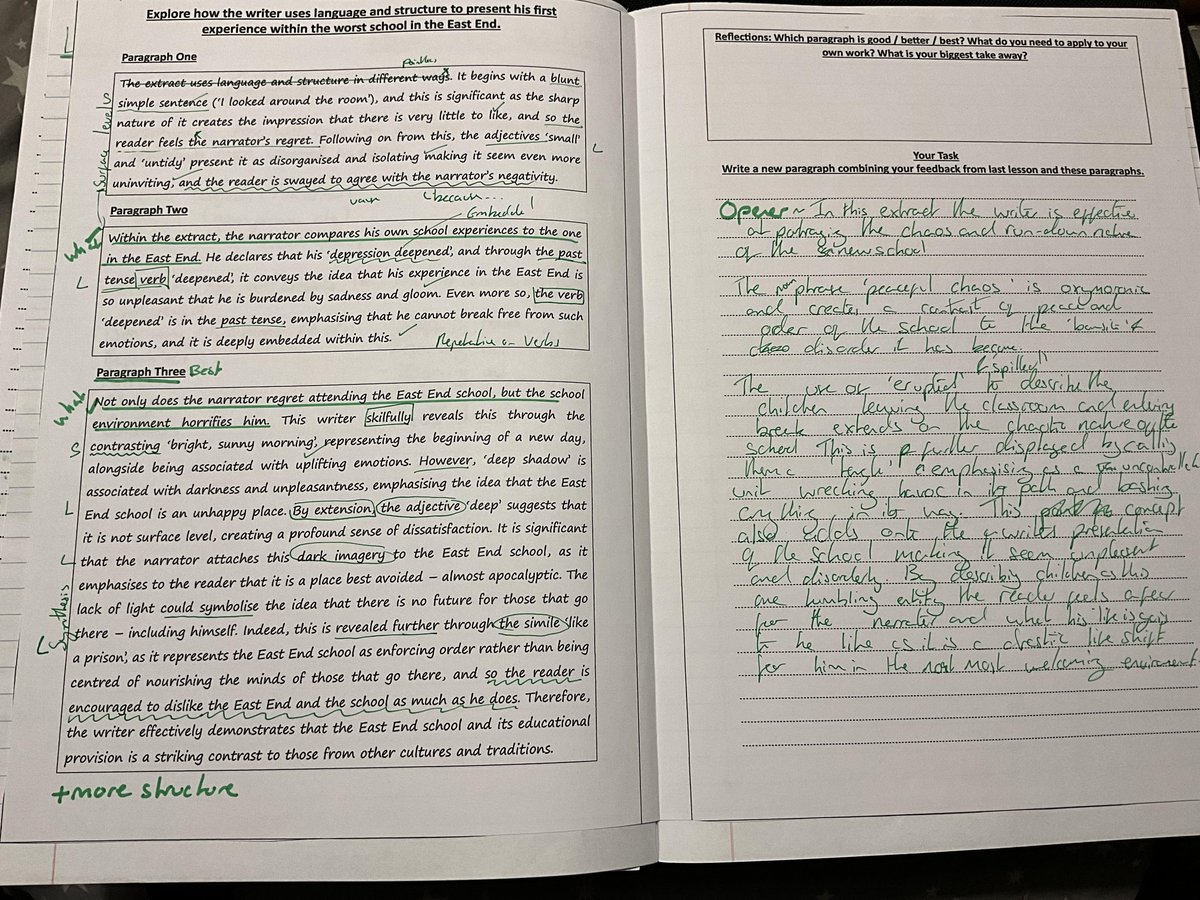 Explore how the writer uses language and structure to present his first
experience within the worst school in the East End.
Paragraph One
The extract uses language and structure in different ways. It begins with a blunt
simple sentence ('I looked around the room'), and this is significant as the sharp
nature of it creates the impression that there is very little to like, and so the
reader feels the narrator's regret. Following on from this, the adjectives 'small'
L
and 'untidy' present it as disorganised and isolating making it seem even more
uninviting, and the reader is swayed to agree with the narrator's negativity.
Surface level
because...
Paragraph Two
Embedded!
What
Within the extract, the narrator compares his own school experiences to the one
in the East End. He declares that his 'depression deepened', and through the past
L
tense verb 'deepened', it conveys the idea that his experience in the East End is
so unpleasant that he is burdened by sadness and gloom. Even more so, the verb
'deepened' is in the past tense, emphasising that he cannot break free from such
emotions, and it is deeply embedded within this.
Repetative on Verbs
Paragraph Three Best
What
Not only does the narrator regret attending the East End school, but the school
environment horrifies him. This writer skilfully reveals this through the
S
contrasting 'bright, sunny morning', representing the beginning of a new day,
alongside being associated with uplifting emotions. However, 'deep shadow' is
associated with darkness and unpleasantness, emphasising the idea that the East
L
End school is an unhappy place. By extension, the adjective 'deep' suggests that
it is not surface level, creating a profound sense of dissatisfaction. It is significant
L
that the narrator attaches this dark imagery to the East End school, as it
emphasises to the reader that it is a place best avoided – almost apocalyptic. The
lack of light could symbolise the idea that there is no future for those that go
Synthesis
L
there – including himself. Indeed, this is revealed further through the simile 'like
a prison', as it represents the East End school as enforcing order rather than being
centred of nourishing the minds of those that go there, and so the reader is
encouraged to dislike the East End and the school as much as he does. Therefore,
the writer effectively demonstrates that the East End school and its educational
provision is a striking contrast to those from other cultures and traditions.
+more structure
Reflections: Which paragraph is good / better / best? What do you need to apply to your
own work? What is your biggest take away?
Your Task
Write a new paragraph combining your feedback from last lesson and these paragraphs.
Opener ~ In this extract the writer is effective
at portraying the chaos and run-down nature
of the new school
The phrase 'peaceful chaos' is oxymoronic
and creates a contrast of peace and
order of the school to the
disorder it has become.
& spilled"
The use of 'erupted' to describe the
children leaving the classroom and entering
break extends on the chaotic nature of the
school This is further displayed by calling
them a emphasising as a uncontrolled
unit wrecking havoc in its path and bashing
anything in its way. This concept
also adds onto the writers presentation
of the school making it seem unpleasent
and disorderly. By describing children as this
one tumbling entity the reader feels a fear
for the narrator and what his life is going
to be like as it is a drastic life shift
for him in the not most welcoming enviroment